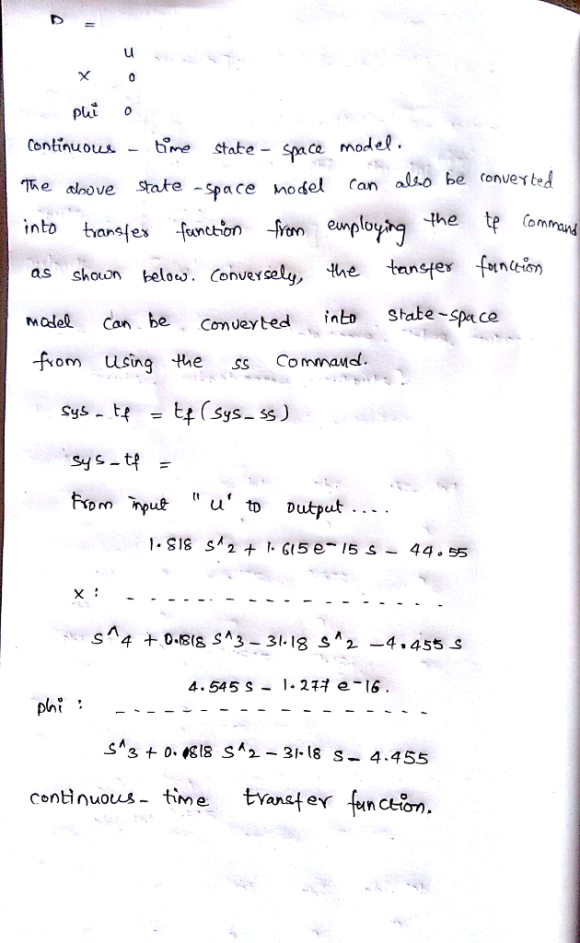 D =
u
x 0
phi 0
continuous - time state - space model.
The above state - space model can also be converted
into transfer function from employing the tf command
as shown below. Conversely, the tansfer function
model can be converted into state-space
from using the ss command.
sys - tf = tf (sys - ss)
sys - tf =
From input "u" to output ....
1.818 s^2 + 1.615 e-15 s - 44.55
x : - - - - - - - - - - - - - - - - - -
s^4 + 0.1818 s^3 - 31.18 s^2 - 4.455 s
4.545 s - 1.277 e-16.
phi : - - - - - - - - - - - - - - - - -
s^3 + 0.1818 s^2 - 31.18 s - 4.455
continuous - time transfer function.